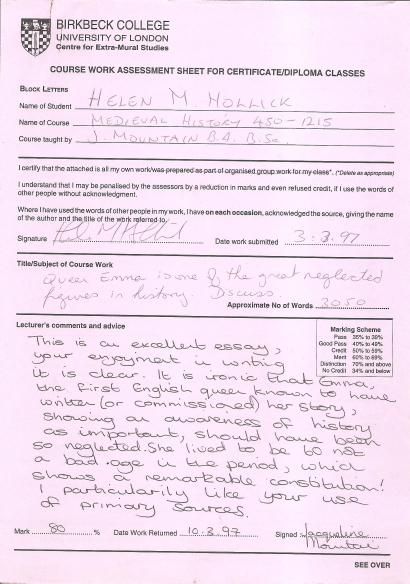 BIRKBECK COLLEGE
UNIVERSITY OF LONDON
Centre for Extra-Mural Studies
COURSE WORK ASSESSMENT SHEET FOR CERTIFICATE/DIPLOMA CLASSES
BLOCK LETTERS
Name of Student HELEN M. HOLLICK
Name of Course MEDIEVAL HISTORY 450-1215
Course taught by J. MOUNTAIN B.A. B.Sc.
I certify that the attached is all my own work/was prepared as part of organised group work for my class*. (*Delete as appropriate)
I understand that I may be penalised by the assessors by a reduction in marks and even refused credit, if I use the words of
other people without acknowledgment.
Where I have used the words of other people in my work, I have on each occasion, acknowledged the source, giving the name
of the author and the title of the work referred to.
Signature Date work submitted 3.3.97
Title/Subject of Course Work
Queen Emma is one of the great neglected
figures in history. Discuss
Approximate No of Words 3050
Lecturer's comments and advice
Marking Scheme
Pass 35% to 39%
Good Pass 40% to 49%
Credit 50% to 59%
Merit 60% to 69%
Distinction 70% and above
No Credit 34% and below
This is an excellent essay,
your enjoyment in writing
it is clear. It is ironic that Emma
the first English queen known to have
written (or commissioned) her story,
showing an awareness of history
as important, should have been
so neglected. She lived to be 60 not
a bad age in the period, which
shows a remarkable constitution!
I particularly like your use
of primary sources.
Mark 80 % Date Work Returned 10.3.97 Signed Jacqueline
Mountain
SEE OVER